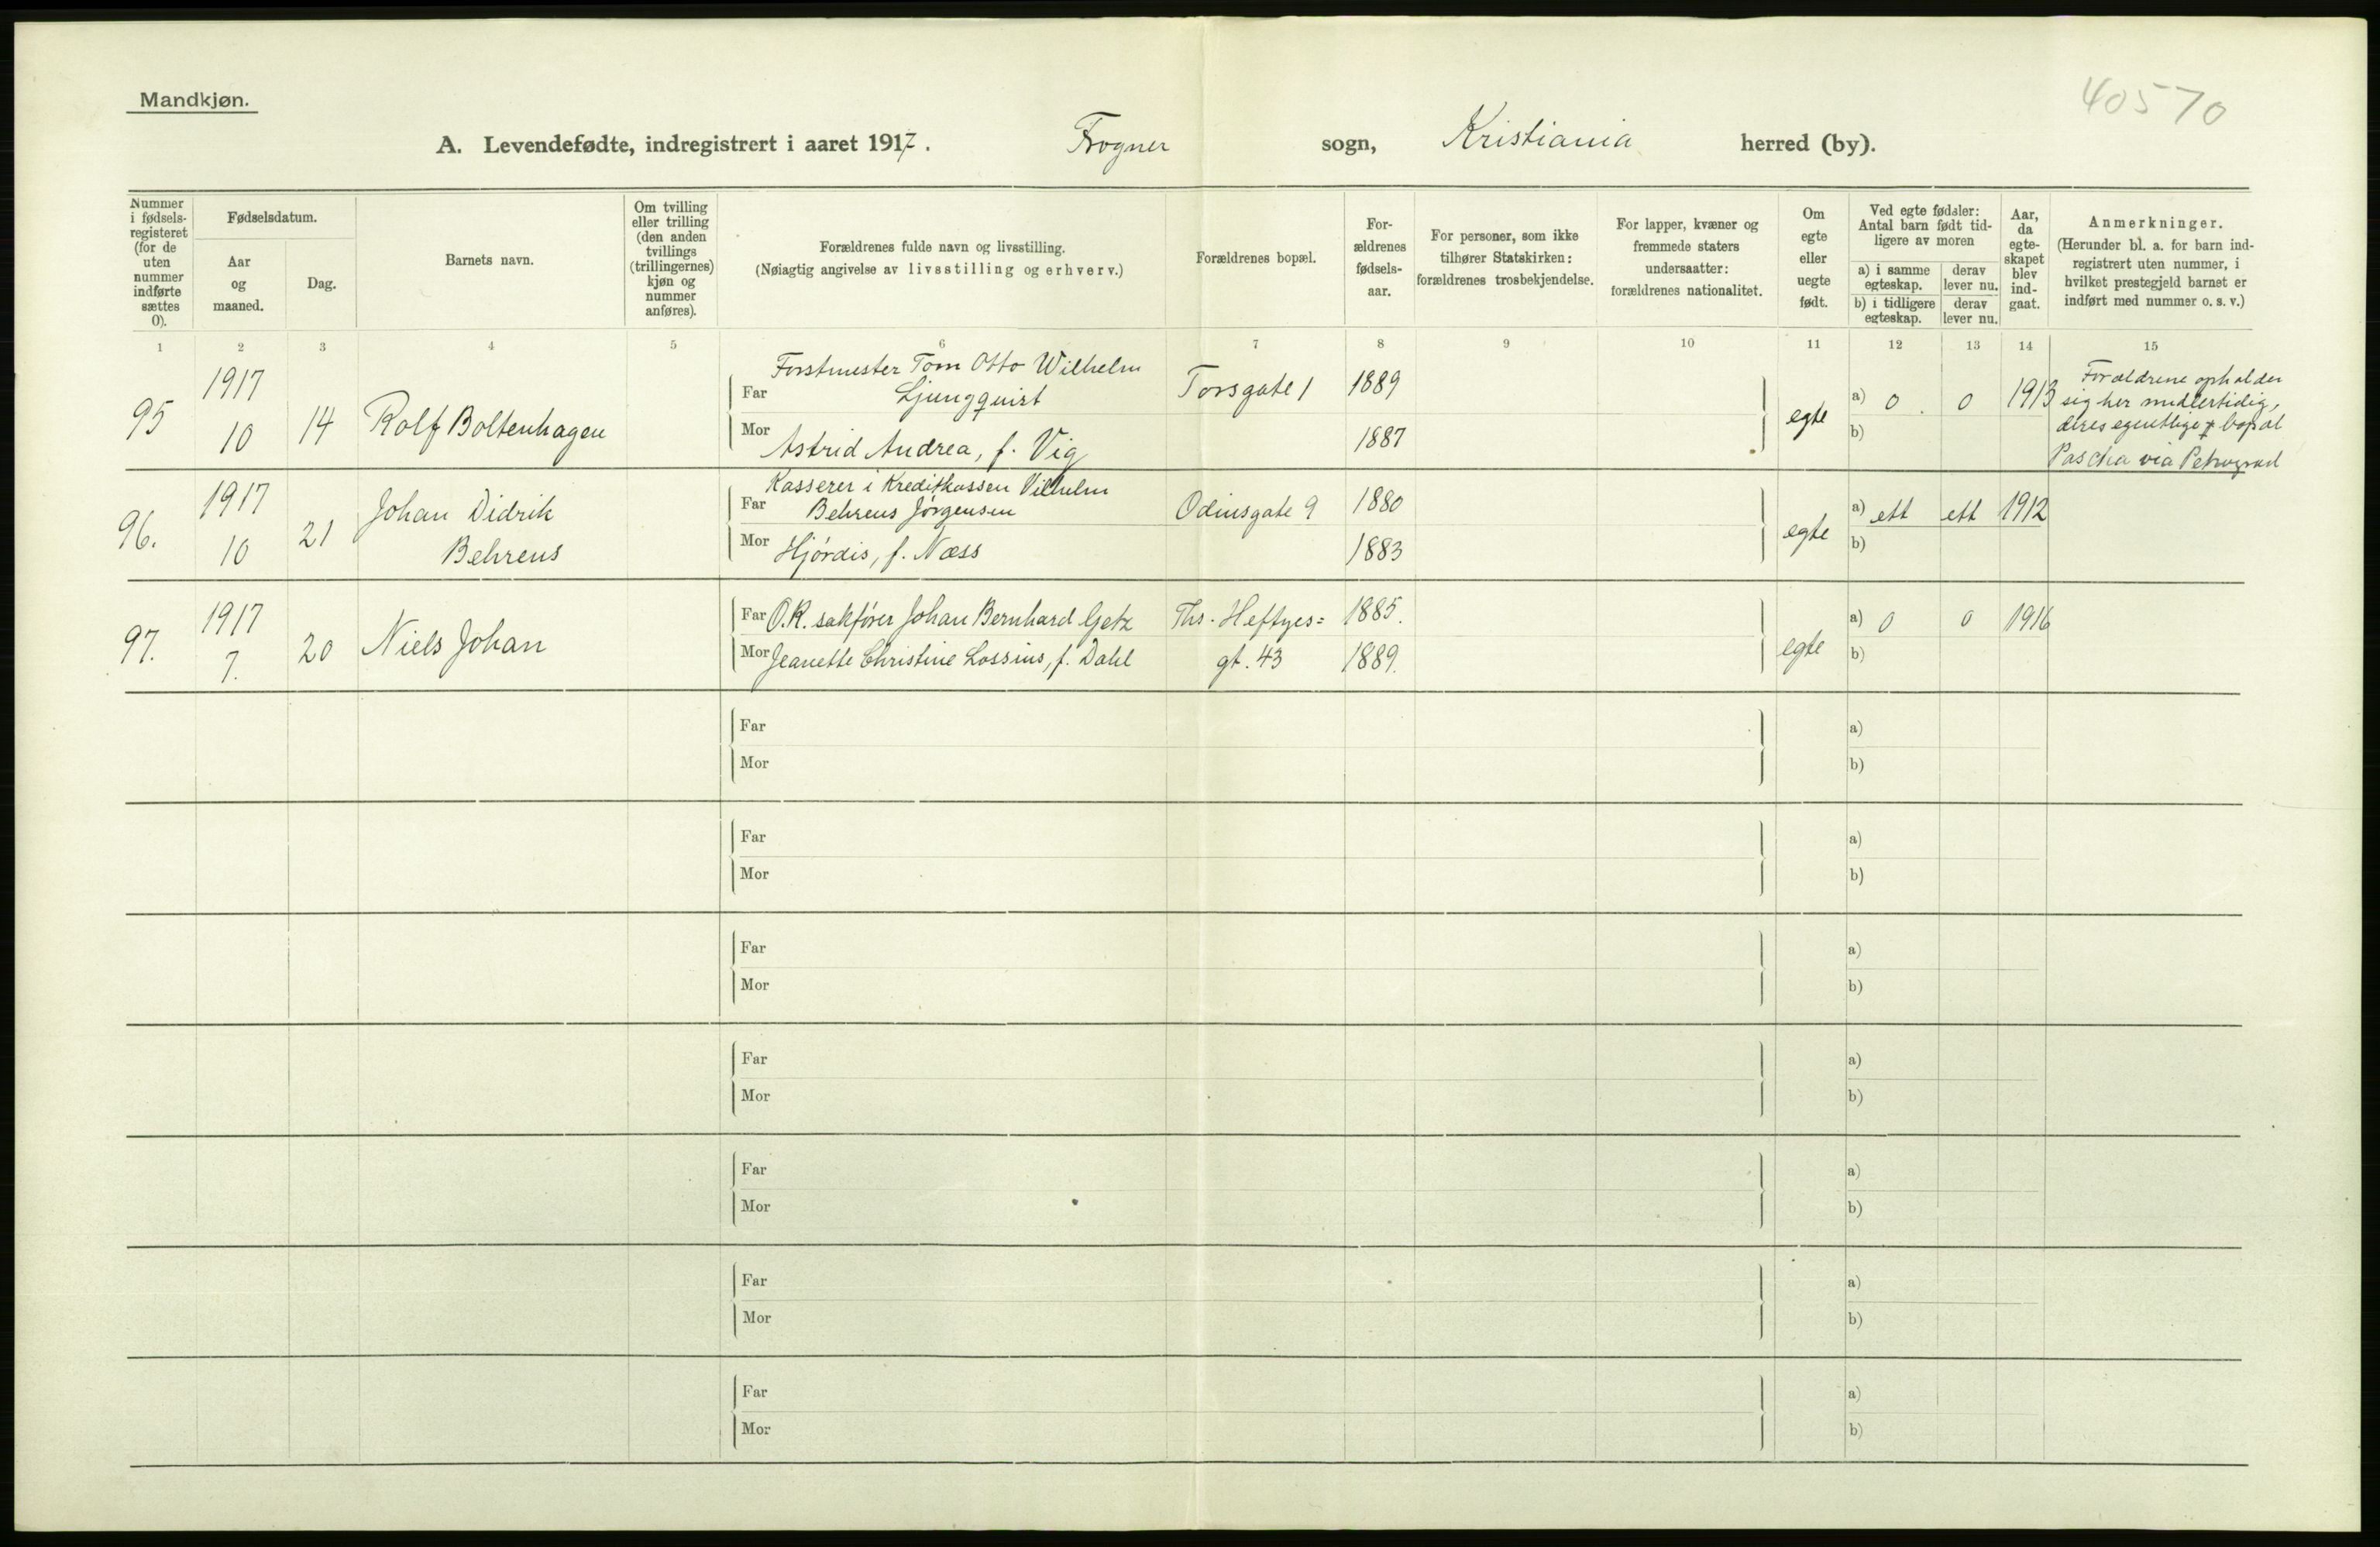 Mandkjøn.
40570
A. Levendefødte, indregistrert i aaret 1917. Frogner sogn, Kristiania herred (by).
Nummer i fødsels-registeret (for de uten nummer indførte sættes 0).
Fødselsdatum.
Aar og maaned.
Dag.
Barnets navn.
Om tvilling eller trilling (den anden tvillings (trillingernes) kjøn og nummer anføres).
Forældrenes fulde navn og livsstilling.
(Nøiagtig angivelse av livsstilling og erhverv.)
Forældrenes bopæl.
For-ældrenes fødsels-aar.
For personer, som ikke tilhører Statskirken: forældrenes trosbekjendelse.
For lapper, kvæner og fremmede staters undersaatter: forældrenes nationalitet.
Om egte eller uegte født.
Ved egte fødsler: Antal barn født tid-ligere av moren
a) i samme egteskap.
derav lever nu.
b) i tidligere egteskap.
derav lever nu.
Aar, da egte-skapet blev ind-gaat.
Anmerkninger.
(Herunder bl. a. for barn ind-registrert uten nummer, i hvilket prestegjeld barnet er indført med nummer o. s. v.)
1 2 3 4 5 6 7 8 9 10 11 12 13 14 15
95 1917 10 14 Rolf Boltenhagen
Forstmester Tom Otto Wilhelm
Far Ljungquist Torsgate 1 1889
Mor Astrid Andrea, f. Vig 1887
egte a) 0. 0 1913
b)
Forældrene opholder
sig her midlertidig,
deres egentlige bopæl
Pascha via Petrograd
96. 1917 10 21 Johan Didrik
Behrens
Kasserer i Kreditkassen Vilhelm
Far Behrens Jørgensen Odinsgate 9 1880
Mor Hjördis, f. Næss 1883
egte a) ett ett 1912
b)
97. 1917 7. 20 Niels Johan
Far O.R. sakfører Johan Bernhard Getz Ths. Heftyes= 1885.
Mor Jeanette Christine Lossius, f. Dahl gt. 43 1889.
egte a) 0 0 1916
b)
Far a)
Mor b)
Far a)
Mor b)
Far a)
Mor b)
Far a)
Mor b)
Far a)
Mor b)
Far a)
Mor b)
Far a)
Mor b)